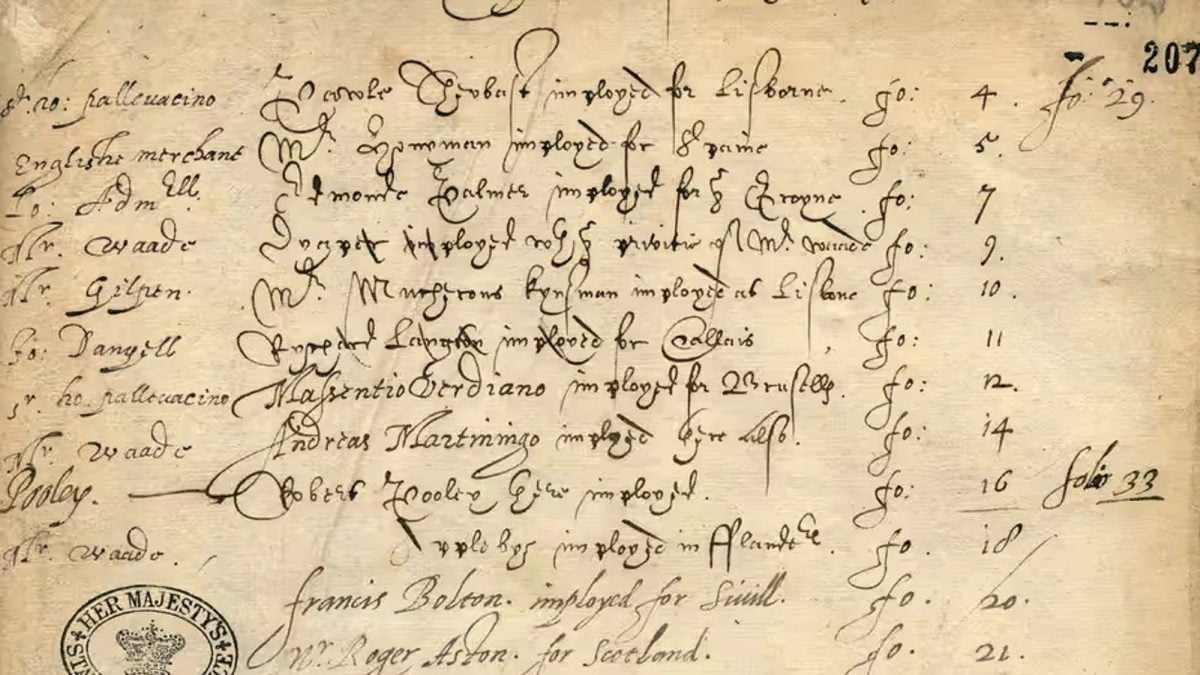 207
Sr ho: Pallevacino imployed for Lisborne. fo: 4. fo: 29.
Englishe merchant Mr. Honyman imployed for Spaine fo: 5.
Lo: Admell. Edmonde Palmer imployed for ye Groyne fo: 7
Mr. Waade imployed wth ye privitie of Mr. Waade fo: 9.
Mr. Gilpen. Mr. Mucherons kynsman imployed at Lisbone fo: 10.
Jo: Danyell Rychard Langton imployed for Callais fo: 11
Sr. ho. Pallevacino Massentio Verdiano imployed for Brusells. fo: 12.
Mr. Waade Andreas Martiningo imployed here also. fo: 14
Pooley. Robert Pooley here imployed. fo: 16 folio 33
Mr. Waade. imployed in Flanders. fo. 18
Francis Bolton. imployed for Sivill. fo. 20.
Mr. Roger Aston. for Scotland. fo. 21.
HER MAJESTY'S